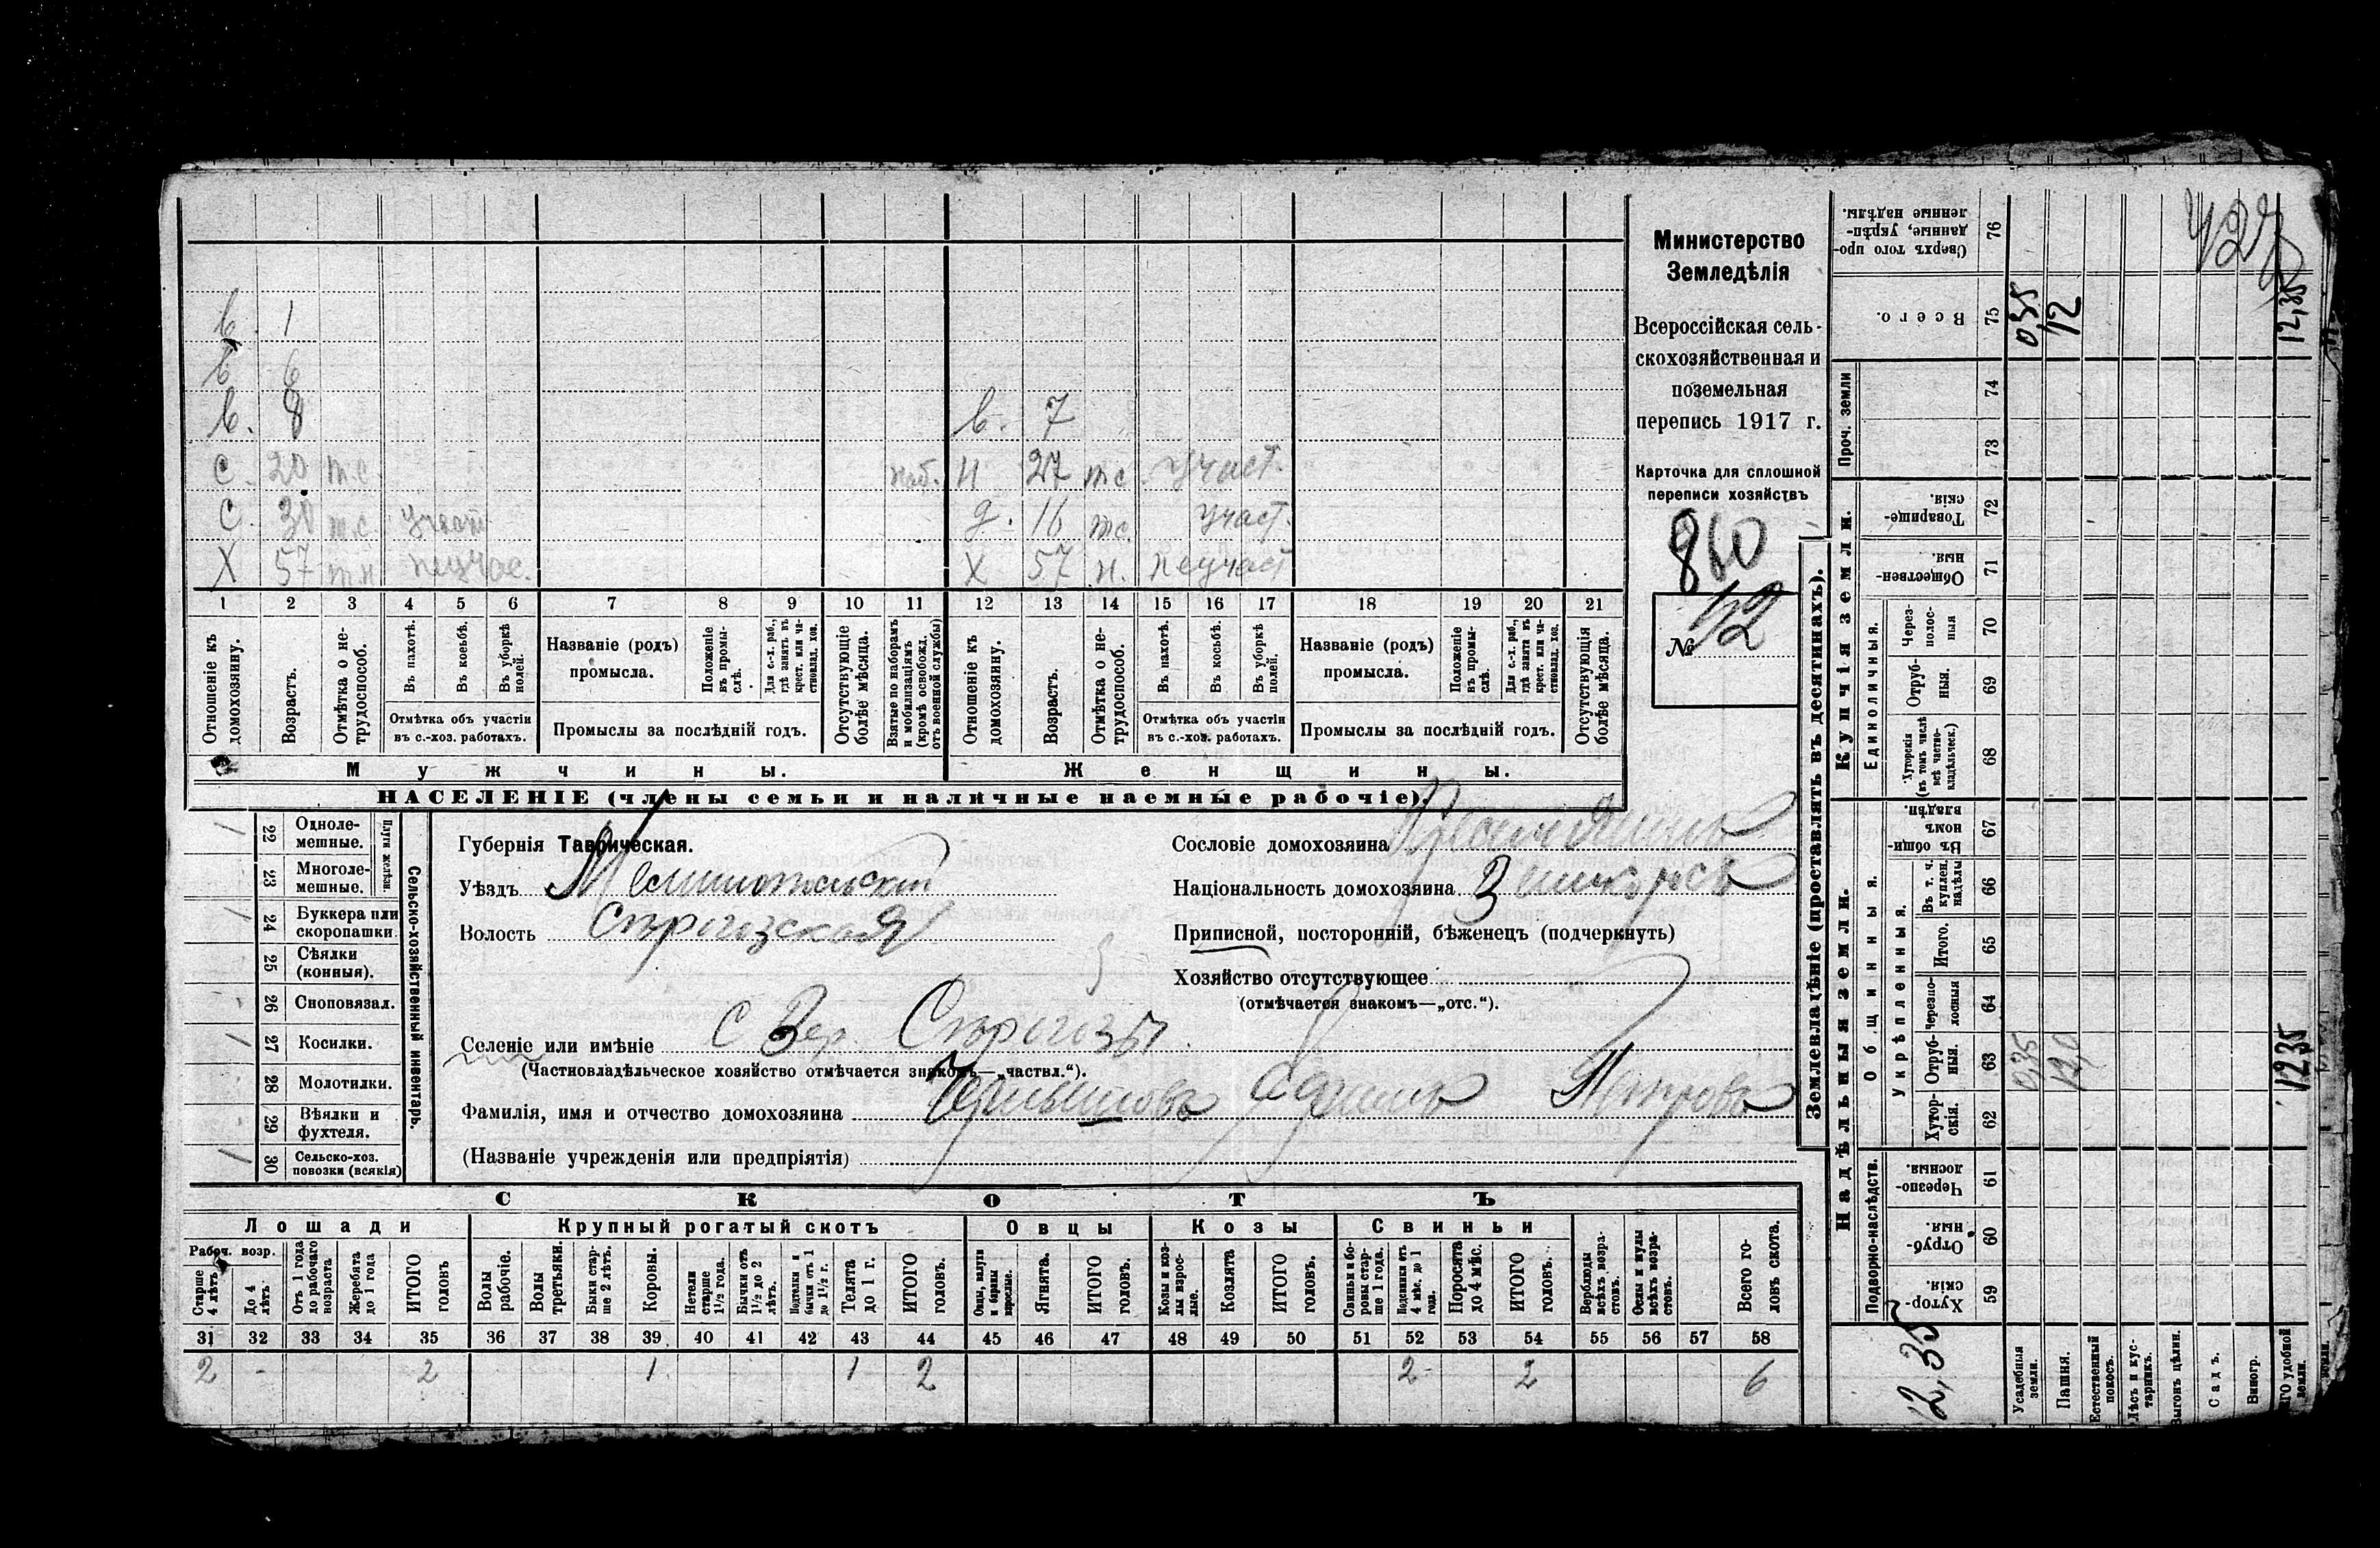 в. 1
в 6
в. 8
в. 7
с. 20 т.с.
наб. н 27 тс участ.
с. 30 т.с. участ
д. 16 тс. участ.
х 57 т.н неучас.
х 57 н. неучаст
1 2 3 4 5 6 7 8 9 10 11 12 13 14 15 16 17 18 19 20 21
Отношеніе къ домохозяину.
Возрастъ.
Отмѣтка о нетрудоспособ.
Въ пахотѣ.
Въ косьбѣ.
Въ уборкѣ полей.
Отмѣтка объ участіи
въ с.-хоз. работахъ.
Названіе (родъ)
промысла.
Положеніе въ промыслѣ.
Для с.-х. раб., гдѣ занятъ въ крест. или частновлад. хоз.
Промыслы за послѣдній годъ.
Отсутствующіе болѣе мѣсяца.
Взятые по наборамъ и мобилизаціямъ (кромѣ освобожд. отъ военной службы)
Отношеніе къ домохозяину.
Возрастъ.
Отмѣтка о нетрудоспособ.
Въ пахотѣ.
Въ косьбѣ.
Въ уборкѣ полей.
Отмѣтка объ участіи
въ с.-хоз. работахъ.
Названіе (родъ)
промысла.
Положеніе въ промыслѣ.
Для с.-х. раб., гдѣ занята въ крест. или частновлад. хоз.
Промыслы за послѣдній годъ.
Отсутствующія болѣе мѣсяца.
Мужчины.
Женщины.
НАСЕЛЕНІЕ (члены семьи и наличные наемные рабочіе).
Министерство
Земледѣлія
Всероссійская сель-
скохозяйственная и
поземельная
перепись 1917 г.
Карточка для сплошной
переписи хозяйствъ
860
№ 42
Сельско-хозяйственный инвентарь.
Плуги желѣзн
22 Одноле-
мешные.
23 Многоле-
мешные.
24 Буккера или
скоропашки.
25 Сѣялки
(конныя).
26 Сноповязал.
27 Косилки.
28 Молотилки.
29 Вѣялки и
фухтеля.
30 Сельско-хоз.
повозки (всякія)
Губернія Таврическая.
Уѣздъ Мелитопольскій
Волость Сѣрогозская
Селеніе или имѣніе С Вер. Сѣрогозы
(Частновладѣльческое хозяйство отмѣчается знакомъ—„частвл.“).
Фамилія, имя и отчество домохозяина
(Названіе учрежденія или предпріятія)
Сословіе домохозяина
Національность домохозяина
Приписной, посторонній, бѣженецъ (подчеркнуть)
Хозяйство отсутствующее
(отмѣчается знакомъ—„отс.“).
СКОТЪ
Лошади
Крупный рогатый скотъ
Овцы
Козы
Свиньи
Рабоч. возр.
Старше 4 лѣтъ
До 4 лѣтъ.
Отъ 1 года до рабочаго возраста
Жеребята до 1 года
ИТОГО головъ
Волы рабочіе.
Волы третьяки.
Быки старше 2 лѣтъ.
Коровы.
Нетели старше 1½ года.
Бычки отъ 1½ до 2 лѣтъ.
Подтелки и бычки отъ 1 до 1½ г.
Телята до 1 г.
ИТОГО головъ.
Овцы, валухи и бараны взрослые.
Ягнята.
ИТОГО головъ.
Козы и козлы взрослые.
Козлята
ИТОГО головъ.
Свиньи и боровы старше 1 года.
Подсвинки отъ 4 мѣс. до 1 года.
Поросята до 4 мѣс.
ИТОГО головъ.
Верблюды всѣхъ возрастовъ.
Ослы и мулы всѣхъ возрастовъ.
Всего головъ скота.
31 32 33 34 35 36 37 38 39 40 41 42 43 44 45 46 47 48 49 50 51 52 53 54 55 56 57 58
2 - 2 1 1 2 2 2 6
Землевладѣніе (проставлять въ десятинахъ).
Надѣльныя земли.
Купчія земли.
Проч. земли
Подворно-наслѣдств.
Общинныя.
Укрѣпленныя.
Единоличныя.
Хуторскія 59
Отрубныя. 60
Черезполосныя. 61
Хуторскія. 62
Отрубныя. 63
Черезполосныя 64
Итого. 65
Въ т. ч. куплен. надѣлы 66
Въ общинномъ владѣн. 67
Хуторскія (въ томъ числѣ всѣ частновладѣльческ.) 68
Отрубныя. 69
Черезполосныя 70
Общественныя 71
Товарищескія. 72
73
74
Всего. 75
Сверхъ того проданные, укрѣпленные надѣлы. 76
Усадебныя земли. 0,35 0,35
Пашня. 12,0 12
Естественный покосъ.
Лѣсъ и кустарникъ.
Выгонъ цѣлин.
Садъ.
Виногр.
12,35 12,35
12,35